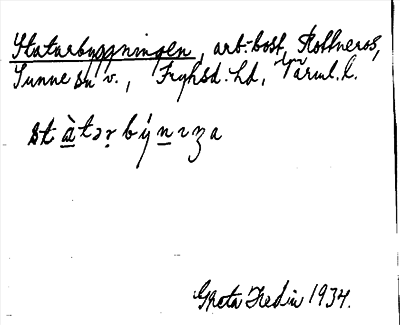 Statarbyggningen, arb.-bost, Rottneros,
Sunne sn v., Frykhsd. hd, Värml. l.
st à t ə r b ý n ı z a
Greta Hedin 1934.